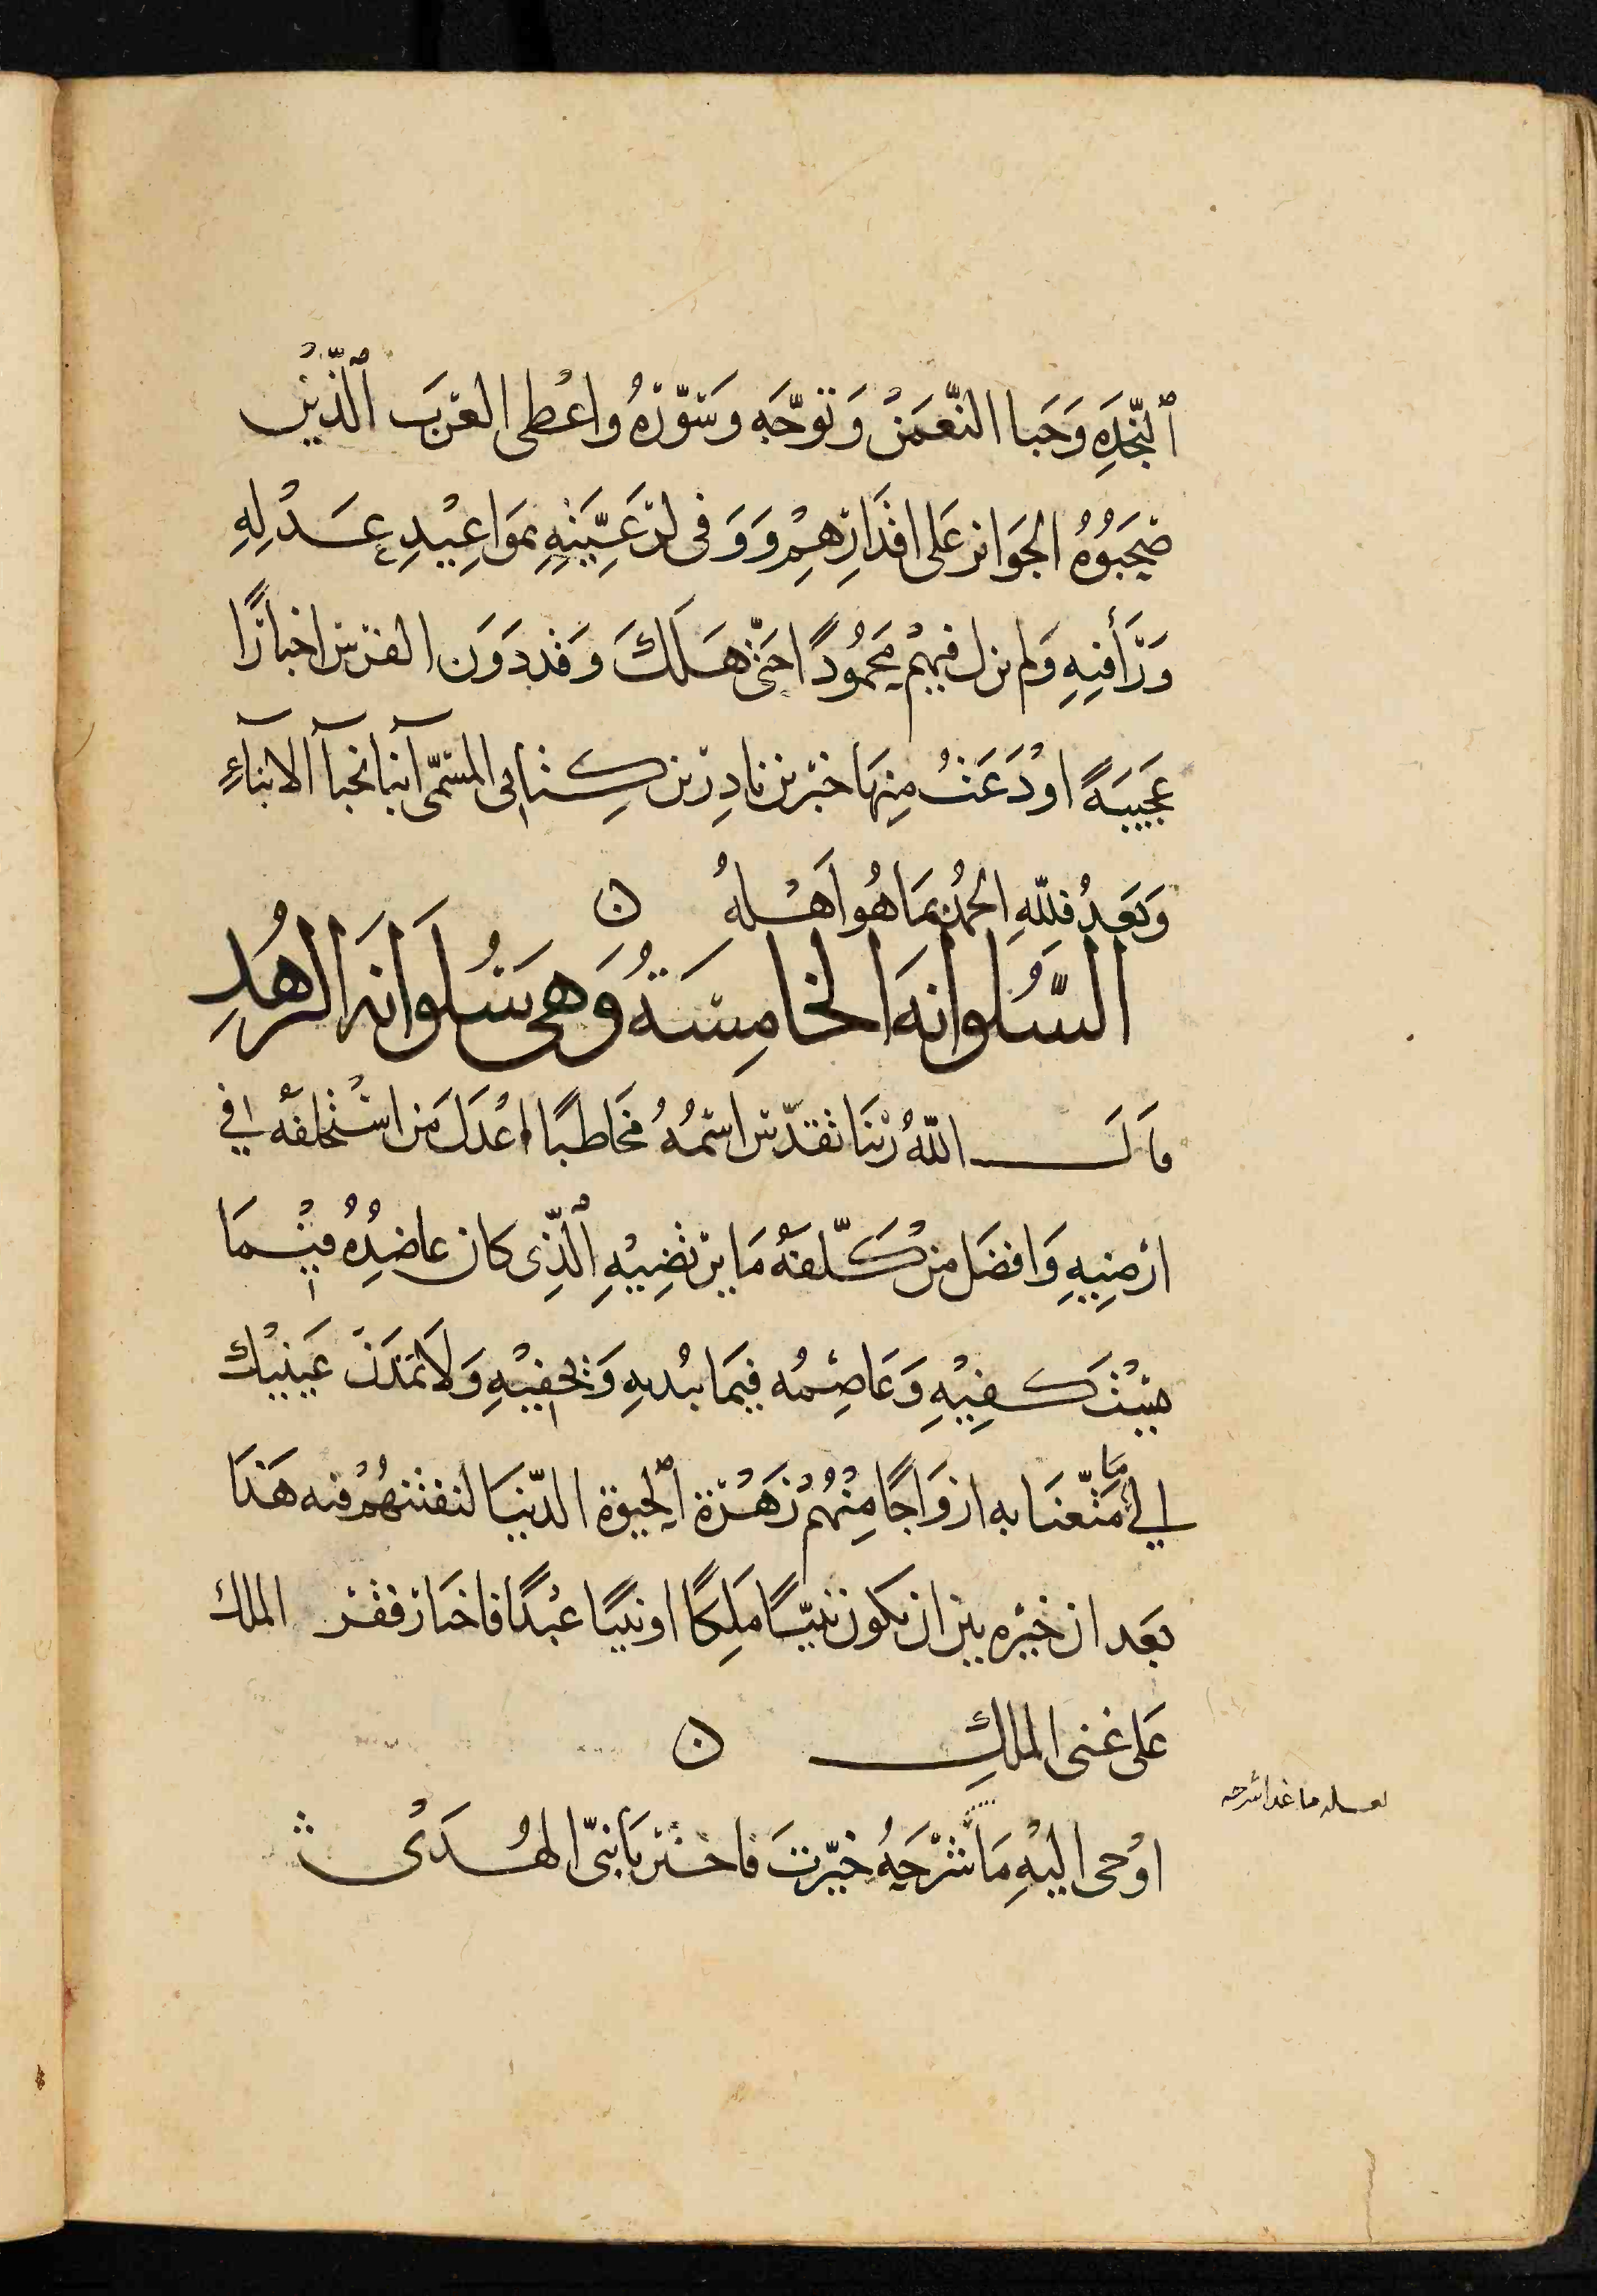 ٱلنَّجْدِهِ وَحَبا النُّعْمَنْ وَتَوَّجَهِ وَسَوَّرَهُ واعْطى العَرَبَ ٱلَّذِيْنَ
صَحِبُوُهُ الجَوَائز عَلى اقْدَارِهِمْ وَوَفى لرَعِيَّتِهِ بمَوَاعِيْدِ عَدْلِهِ
وَرَأفتِهِ وَلم يزل فيهمْ مَحْمُودًا حَتّى هَلَكَ وَقد دَوَن الفرْس اخبارًا
عَجيبَةً اوْدَعَتْ مِنهَا خبْرين نادِرَين كِتابى المسَمّى آنبا نجبآ الابنآءِ
وَبَعدُ فللّهِ الحمْدُ بمَا هُو اَهْلهُ ن
السُّلوانهَ الخامِسَةُ وَهى سُلوَانَه الزهُدِ
قاَلَ اللّهُ رَبّنَا تقدّس اسْمُهُ مخَاطبًا اعْدَلَ مَن اسْتخلفهُ في
ارْضِيِهِ وَافضَل منْ كَلّفهُ مَا يرْتضِيْهِ ٱلَّذِى كان عاضِدُهُ فيْمَا
يَسْتَكفِيْهِ وَعَاصِمُه فيمَا يُبديهِ وَيخْفِيْهِ وَلاَ تمَدَنّ عَيْنيْك
إلى مَا مَتّعنَا به ازوَاجًا مِنْهُمْ زَهْرَة ٱلحيوة الدّنيَا لنفتنهُمْ فيه هَذا
بَعد ان خيْره بين ان يكون نبيّا مَلِكًا او نبيّا عبْدًا فاختارَ فقْر الملك
عَلى غنى الملكِ ن
اوْحى اليْهِ مَا شَرْحَهُ خيّرتَ فاختر يَا نبىّ الهُدَى
لعله ما غدا شرحه